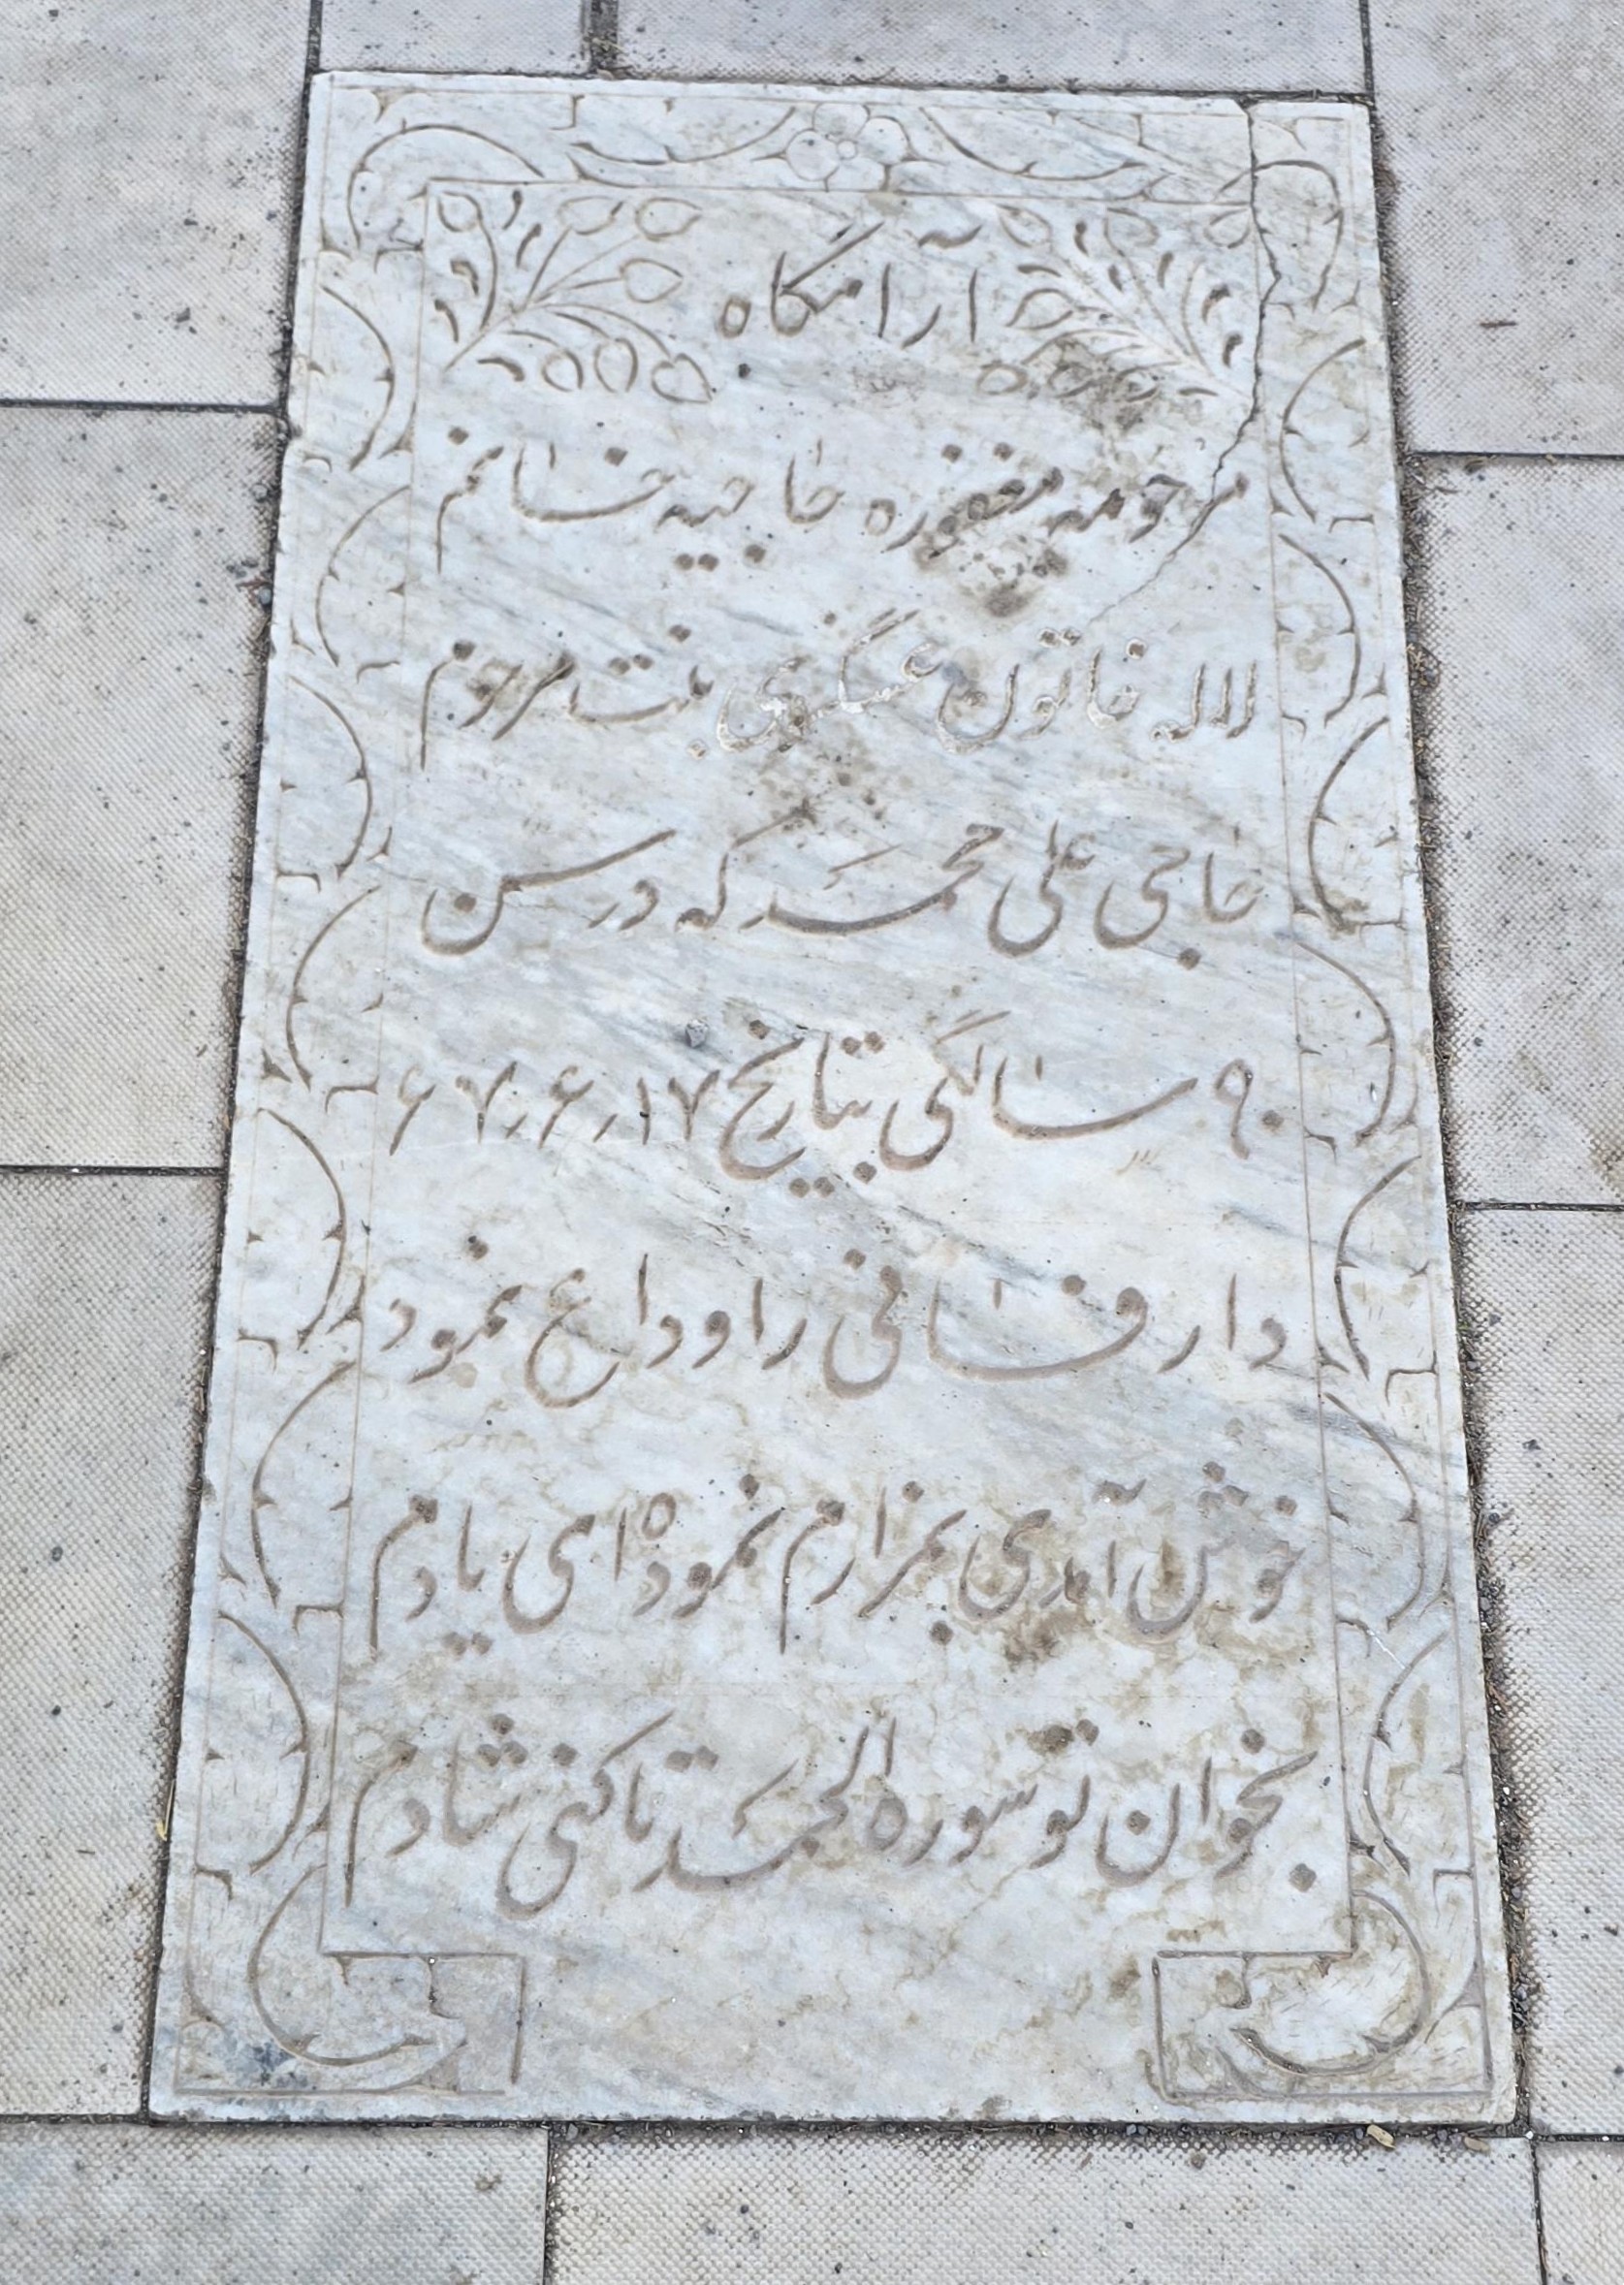 آرامگاه
مرحومه مغفوره حاجیه خانم
لاله خاتون عسگری بنت مرحوم
حاجی علی محمد که در سن
۹۰ سالگی بتاریخ ۶۷٫۶٫۱۷
دار فانی را وداع نمود
خوش آمدی بمزارم نموده ای یادم
بخوان تو سوره الحمد تا کنی شادم